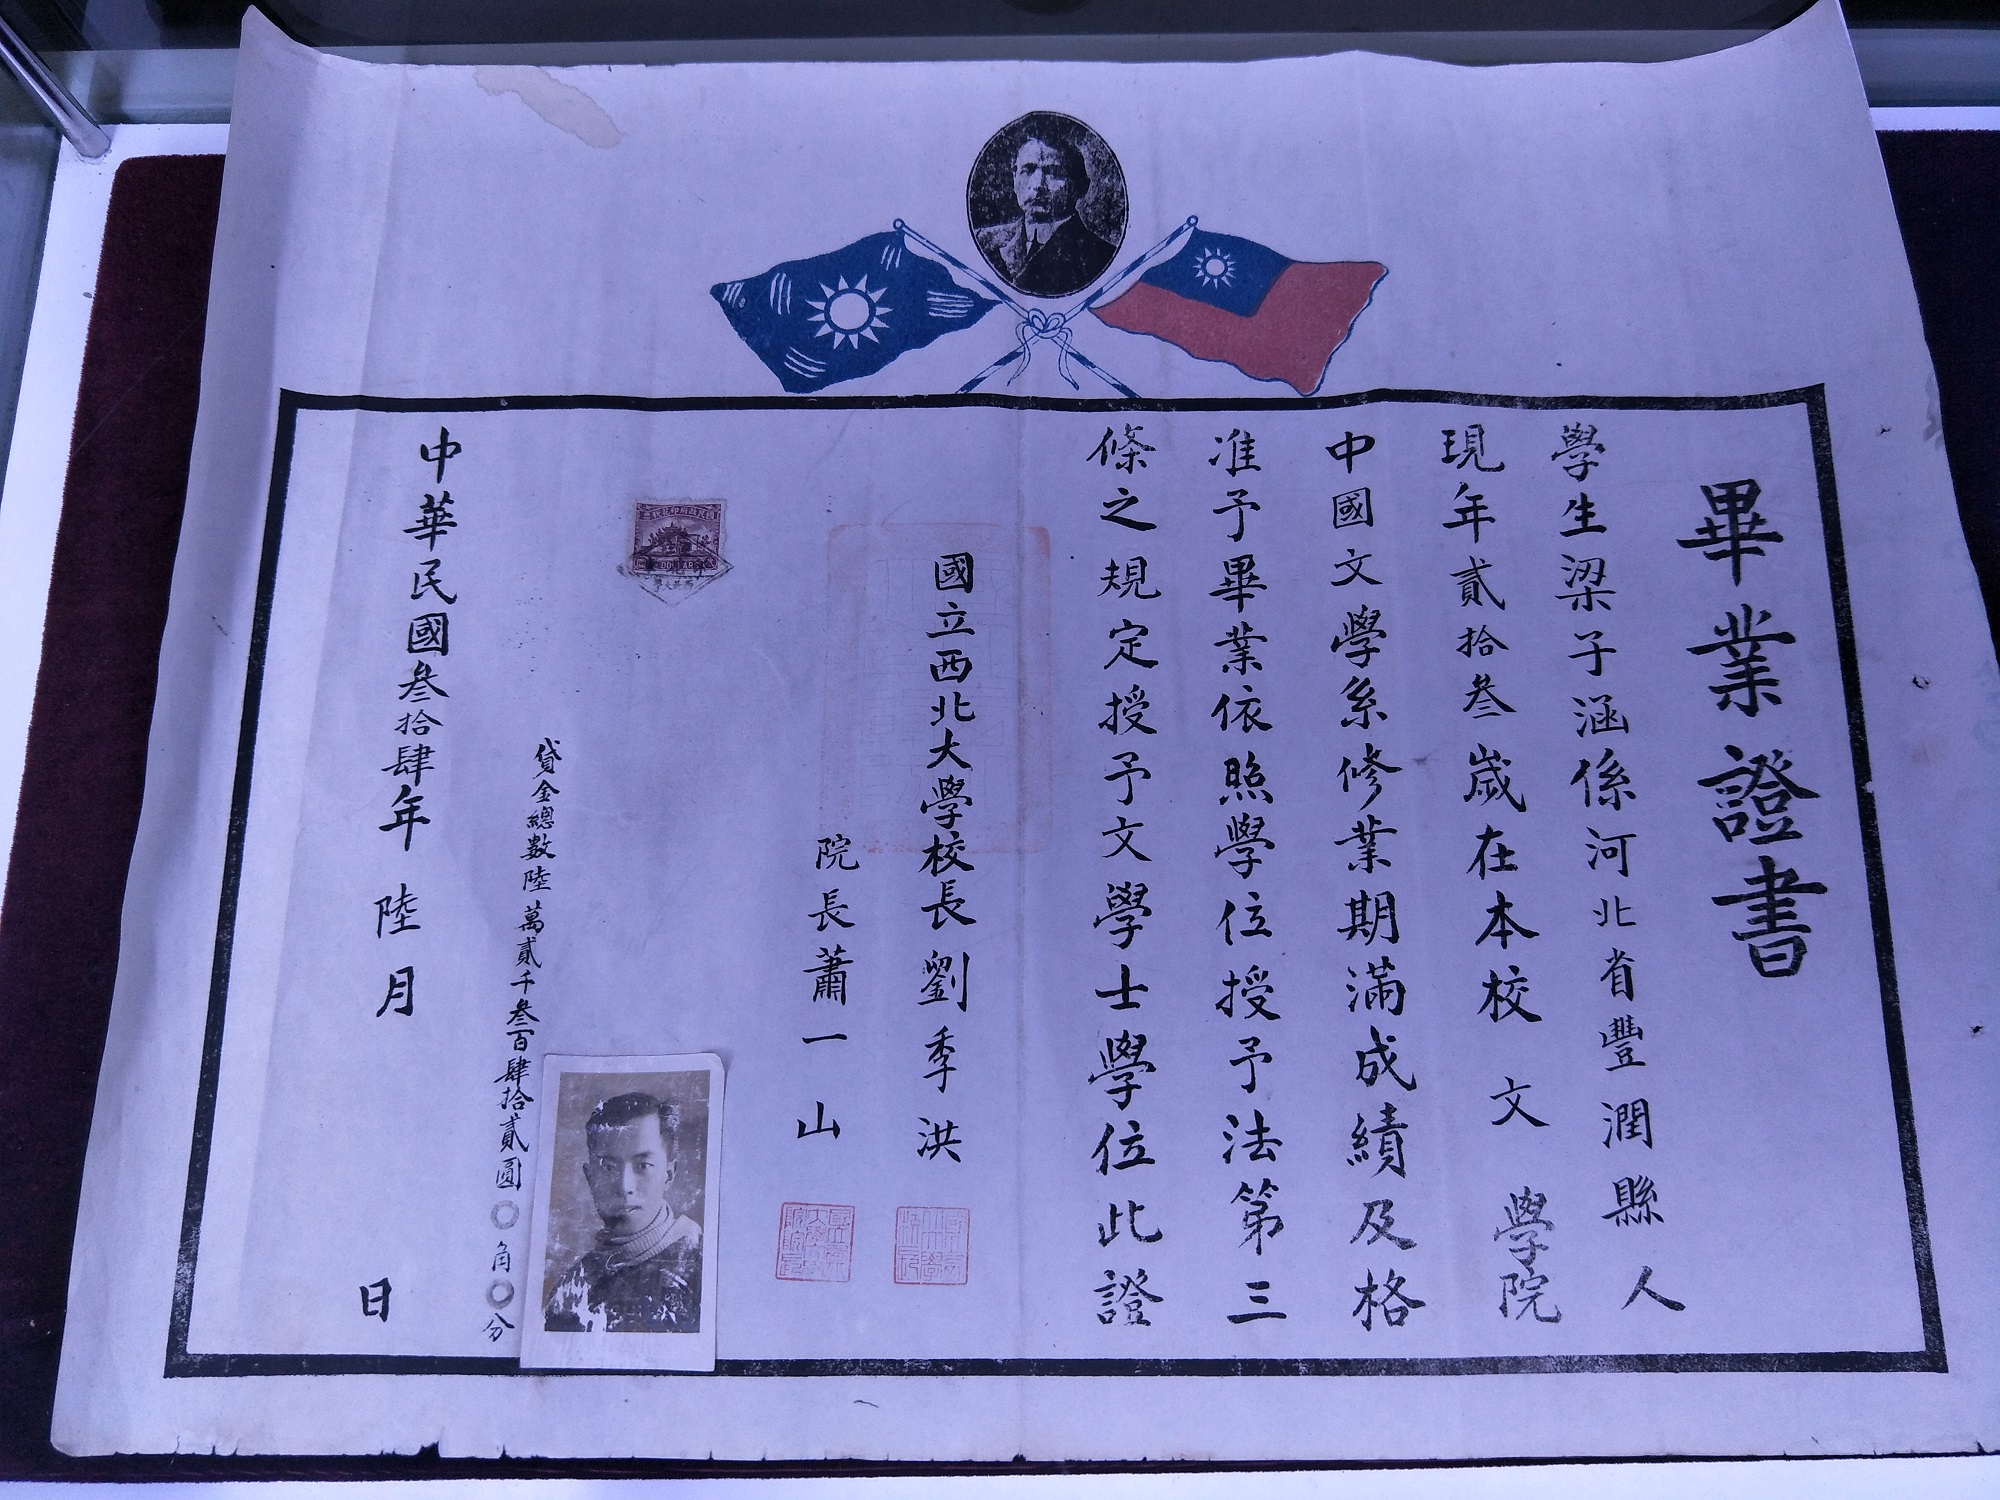 畢業證書
學生梁子涵係河北省豐潤縣人
現年貳拾叁歲在本校文學院
中國文學系修業期滿成績及格
准予畢業依照學位授予法第三
條之規定授予文學士學位此證
國立西北大學校長劉季洪
院長蕭一山
國民政府印花稅票
貸金總數陸萬貳千叁百肆拾貳圓〇角〇分
中華民國叁拾肆年陸月日